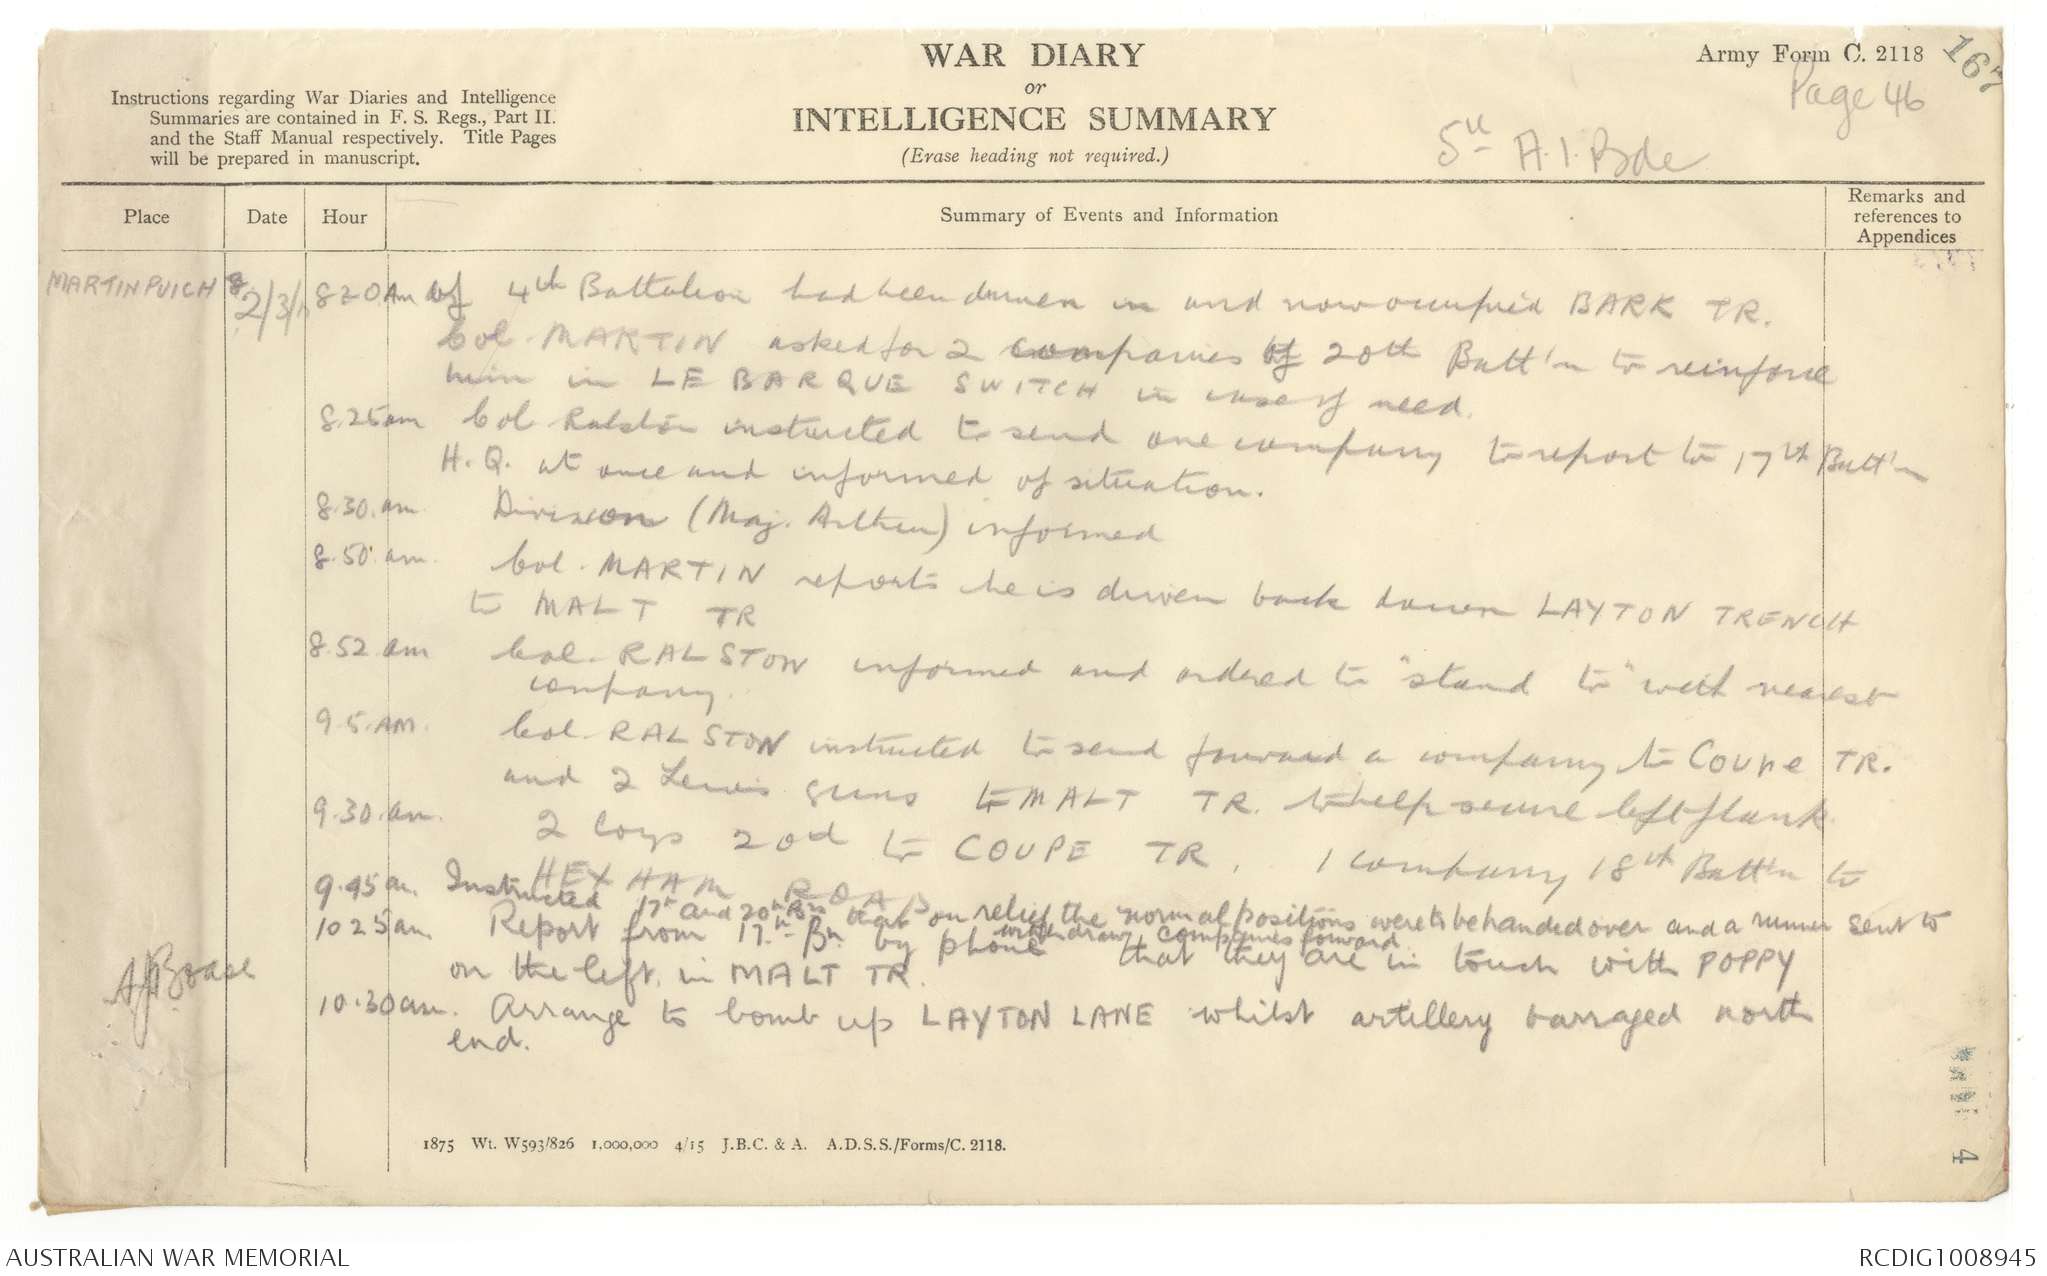 WAR DIARY
or
INTELLIGENCE SUMMARY
(Erase heading not required.)
Army Form C. 2118
167
Page 46
5th A.I. Bde
Instructions regarding War Diaries and Intelligence
Summaries are contained in F. S. Regs., Part II.
and the Staff Manual respectively. Title Pages
will be prepared in manuscript.
Place Date Hour Summary of Events and Information Remarks and references to Appendices
MARTINPUICH 2/3/17 8.20 Am of 4th Battalion had been driven in and now occupied BARK TR.
Col. MARTIN asked for 2 companies of 20th Batt'n to reinforce
him in LE BARQUE SWITCH in case of need.
8.25 am Col Ralston instructed to send one company to report to 17th Batt'n
H.Q. at once and informed of situation.
8.30. am. Division (Maj. Arthur) informed
8.50. am. Col. MARTIN reports he is driven back down LAYTON TRENCH
to MALT TR
8.52. am Col. RALSTON informed and ordered to "stand to" with nearest
company.
9.5. AM. Col. RALSTON instructed to send forward a company to COUPE TR.
and 2 Lewis guns to MALT TR. to help secure left flank.
9.30. am. 2 Coys 20th to COUPE TR. 1 company 18th Batt'n to
HEXHAM ROAD
9.45 am. Instructed 17th and 20th Bns that on relief the normal positions were to be handed over and a runner sent to
withdraw companies forward
10 25 am. Report from 17th Bn by phone that they are in touch with POPPY
on the left. in MALT TR.
10.30 am. Arrange to bomb up LAYTON LANE whilst artillery barraged north
end.
AJBoase
4
1875 Wt. W593/826 1,000,000 4/15 J.B.C. & A. A.D.S.S./Forms/C. 2118.
AUSTRALIAN WAR MEMORIAL
RCDIG1008945